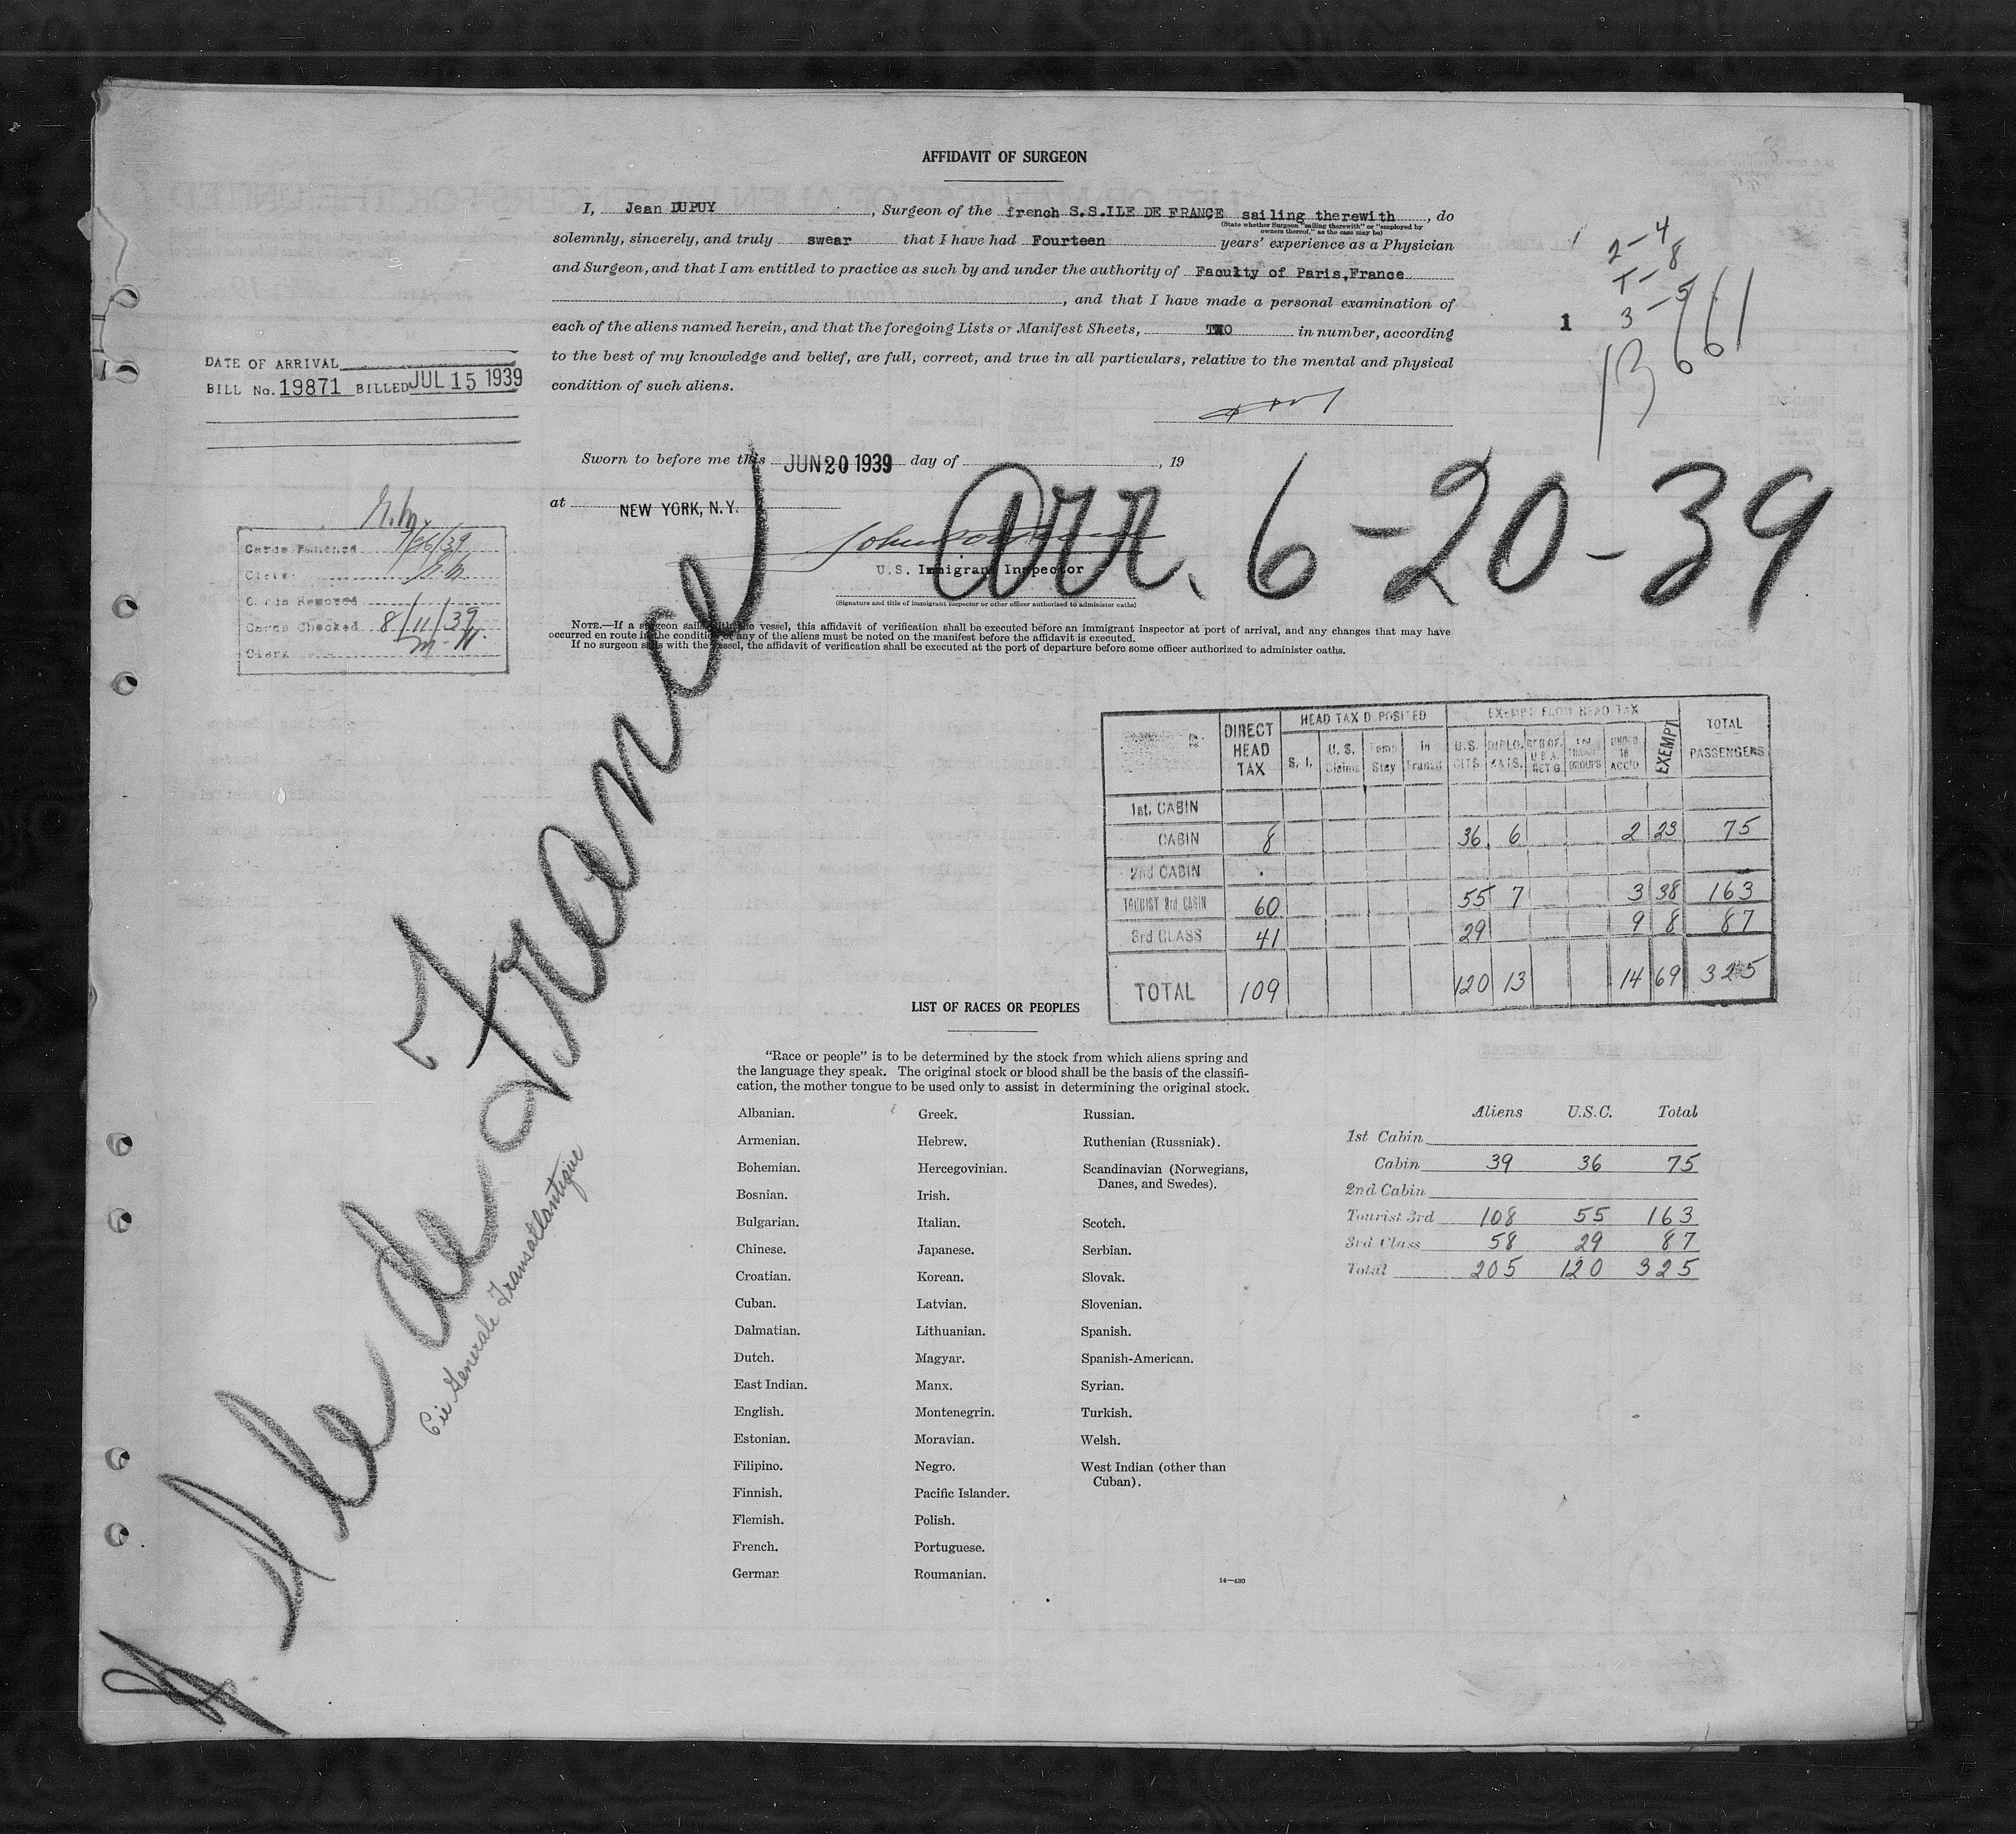 AFFIDAVIT OF SURGEON
I, Jean DUPUY, Surgeon of the french S.S.ILE DE FRANCE sailing therewith, do
(State whether Surgeon "sailing therewith" or "employed by
owners thereof," as the case may be)
solemnly, sincerely, and truly swear that I have had Fourteen years' experience as a Physician
and Surgeon, and that I am entitled to practice as such by and under the authority of Faculty of Paris,France
, and that I have made a personal examination of
each of the aliens named herein, and that the foregoing Lists or Manifest Sheets, TWO in number, according
to the best of my knowledge and belief, are full, correct, and true in all particulars, relative to the mental and physical
condition of such aliens.
2-4
8
3-5
1
13
661
DATE OF ARRIVAL
BILL No. 19871 BILLED JUL 15 1939
Sworn to before me this JUN 20 1939 day of , 19
at NEW YORK, N.Y.
Arr. 6-20-39
U.S. Immigrant Inspector
(Signature and title of immigrant inspector or other officer authorized to administer oaths)
Cards Punched 7/26/39
Clerk
Cards Removed
Cards Checked 8/11/39
Clerk M.W.
NOTE.—If a surgeon sails with the vessel, this affidavit of verification shall be executed before an immigrant inspector at port of arrival, and any changes that may have
occurred en route in the condition of any of the aliens must be noted on the manifest before the affidavit is executed.
If no surgeon sails with the vessel, the affidavit of verification shall be executed at the port of departure before some officer authorized to administer oaths.
Ile de France
Cie Generale Transatlantique
DIRECT HEAD TAX
HEAD TAX DEPOSITED
EXEMPT FROM HEAD TAX
TOTAL PASSENGERS
S. I. U. S. Claims Temp Stay In Transit U.S. CITS. DIPLO. UNDER 16 ACC'D EXEMPT
1st. CABIN
CABIN 8 36 6 2 23 75
2nd CABIN
TOURIST 3rd CABIN 60 55 7 3 38 163
3rd CLASS 41 29 9 8 87
TOTAL 109 120 13 14 69 325
LIST OF RACES OR PEOPLES
"Race or people" is to be determined by the stock from which aliens spring and
the language they speak. The original stock or blood shall be the basis of the classifi-
cation, the mother tongue to be used only to assist in determining the original stock.
Albanian.
Armenian.
Bohemian.
Bosnian.
Bulgarian.
Chinese.
Croatian.
Cuban.
Dalmatian.
Dutch.
East Indian.
English.
Estonian.
Filipino.
Finnish.
Flemish.
French.
German
Greek.
Hebrew.
Hercegovinian.
Irish.
Italian.
Japanese.
Korean.
Latvian.
Lithuanian.
Magyar.
Manx.
Montenegrin.
Moravian.
Negro.
Pacific Islander.
Polish.
Portuguese.
Roumanian.
Russian.
Ruthenian (Russniak).
Scandinavian (Norwegians,
Danes, and Swedes).
Scotch.
Serbian.
Slovak.
Slovenian.
Spanish.
Spanish-American.
Syrian.
Turkish.
Welsh.
West Indian (other than
Cuban).
14—430
Aliens U.S.C. Total
1st Cabin
Cabin 39 36 75
2nd Cabin
Tourist 3rd 108 55 163
3rd Class 58 29 87
Total 205 120 325